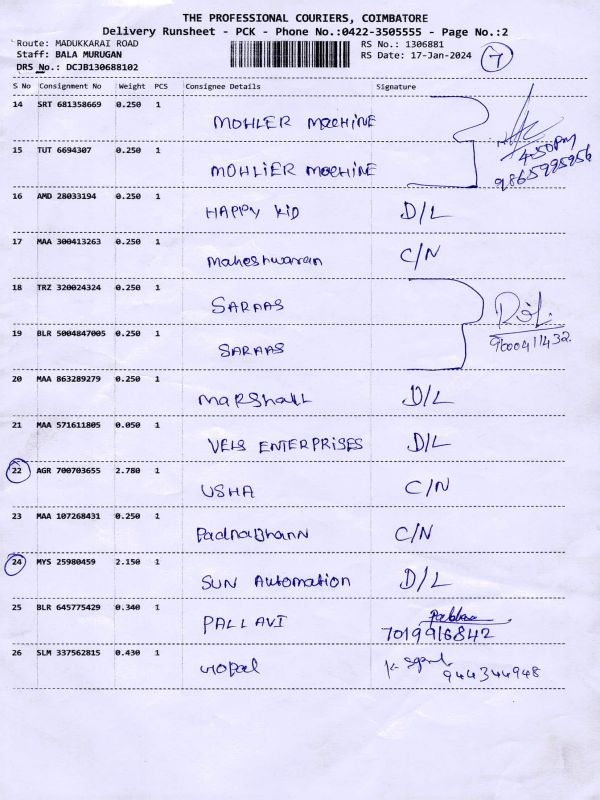 THE PROFESSIONAL COURIERS, COIMBATORE
Delivery Runsheet - PCK - Phone No.:0422-3505555 - Page No.:2
Route: MADUKKARAI ROAD RS No.: 1306881
Staff: BALA MURUGAN RS Date: 17-Jan-2024 7
DRS No.: DCJB130688102
S No Consignment No Weight PCS Consignee Details Signature
14 SRT 681358669 0.250 1 MOHLER MECHINE
4:50pm
9865995956
15 TUT 6694307 0.250 1 MOHLIER MECHINE
16 AMD 28033194 0.250 1 HAPPY KID D/L
17 MAA 300413263 0.250 1 Maheshwaran C/N
18 TRZ 320024324 0.250 1 SARAAS
19 BLR 5004847005 0.250 1 SARAAS 9600411432
20 MAA 863289279 0.250 1 MARShALL D/L
21 MAA 571611805 0.050 1 VELS ENTERPRISES D/L
22 AGR 700703655 2.780 1 USHA C/N
23 MAA 107268431 0.250 1 PadnaBhann C/N
24 MYS 25980459 2.150 1 SUN Automation D/L
25 BLR 645775429 0.340 1 PALLAVI 7019916842
26 SLM 337562815 0.430 1 Gopal 944344948